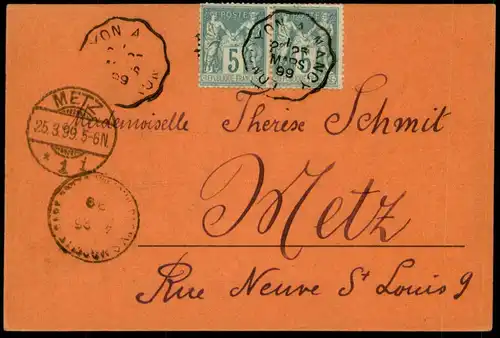 POSTE
5
REPUBLIQUE FRANC
LYON A NANCY
MARS
99
LYON A
99
METZ
25.3.99.5-6N.
* 1 1
Mademoiselle Thérèse Schmit
Metz
Rue Neuve St Louis 9